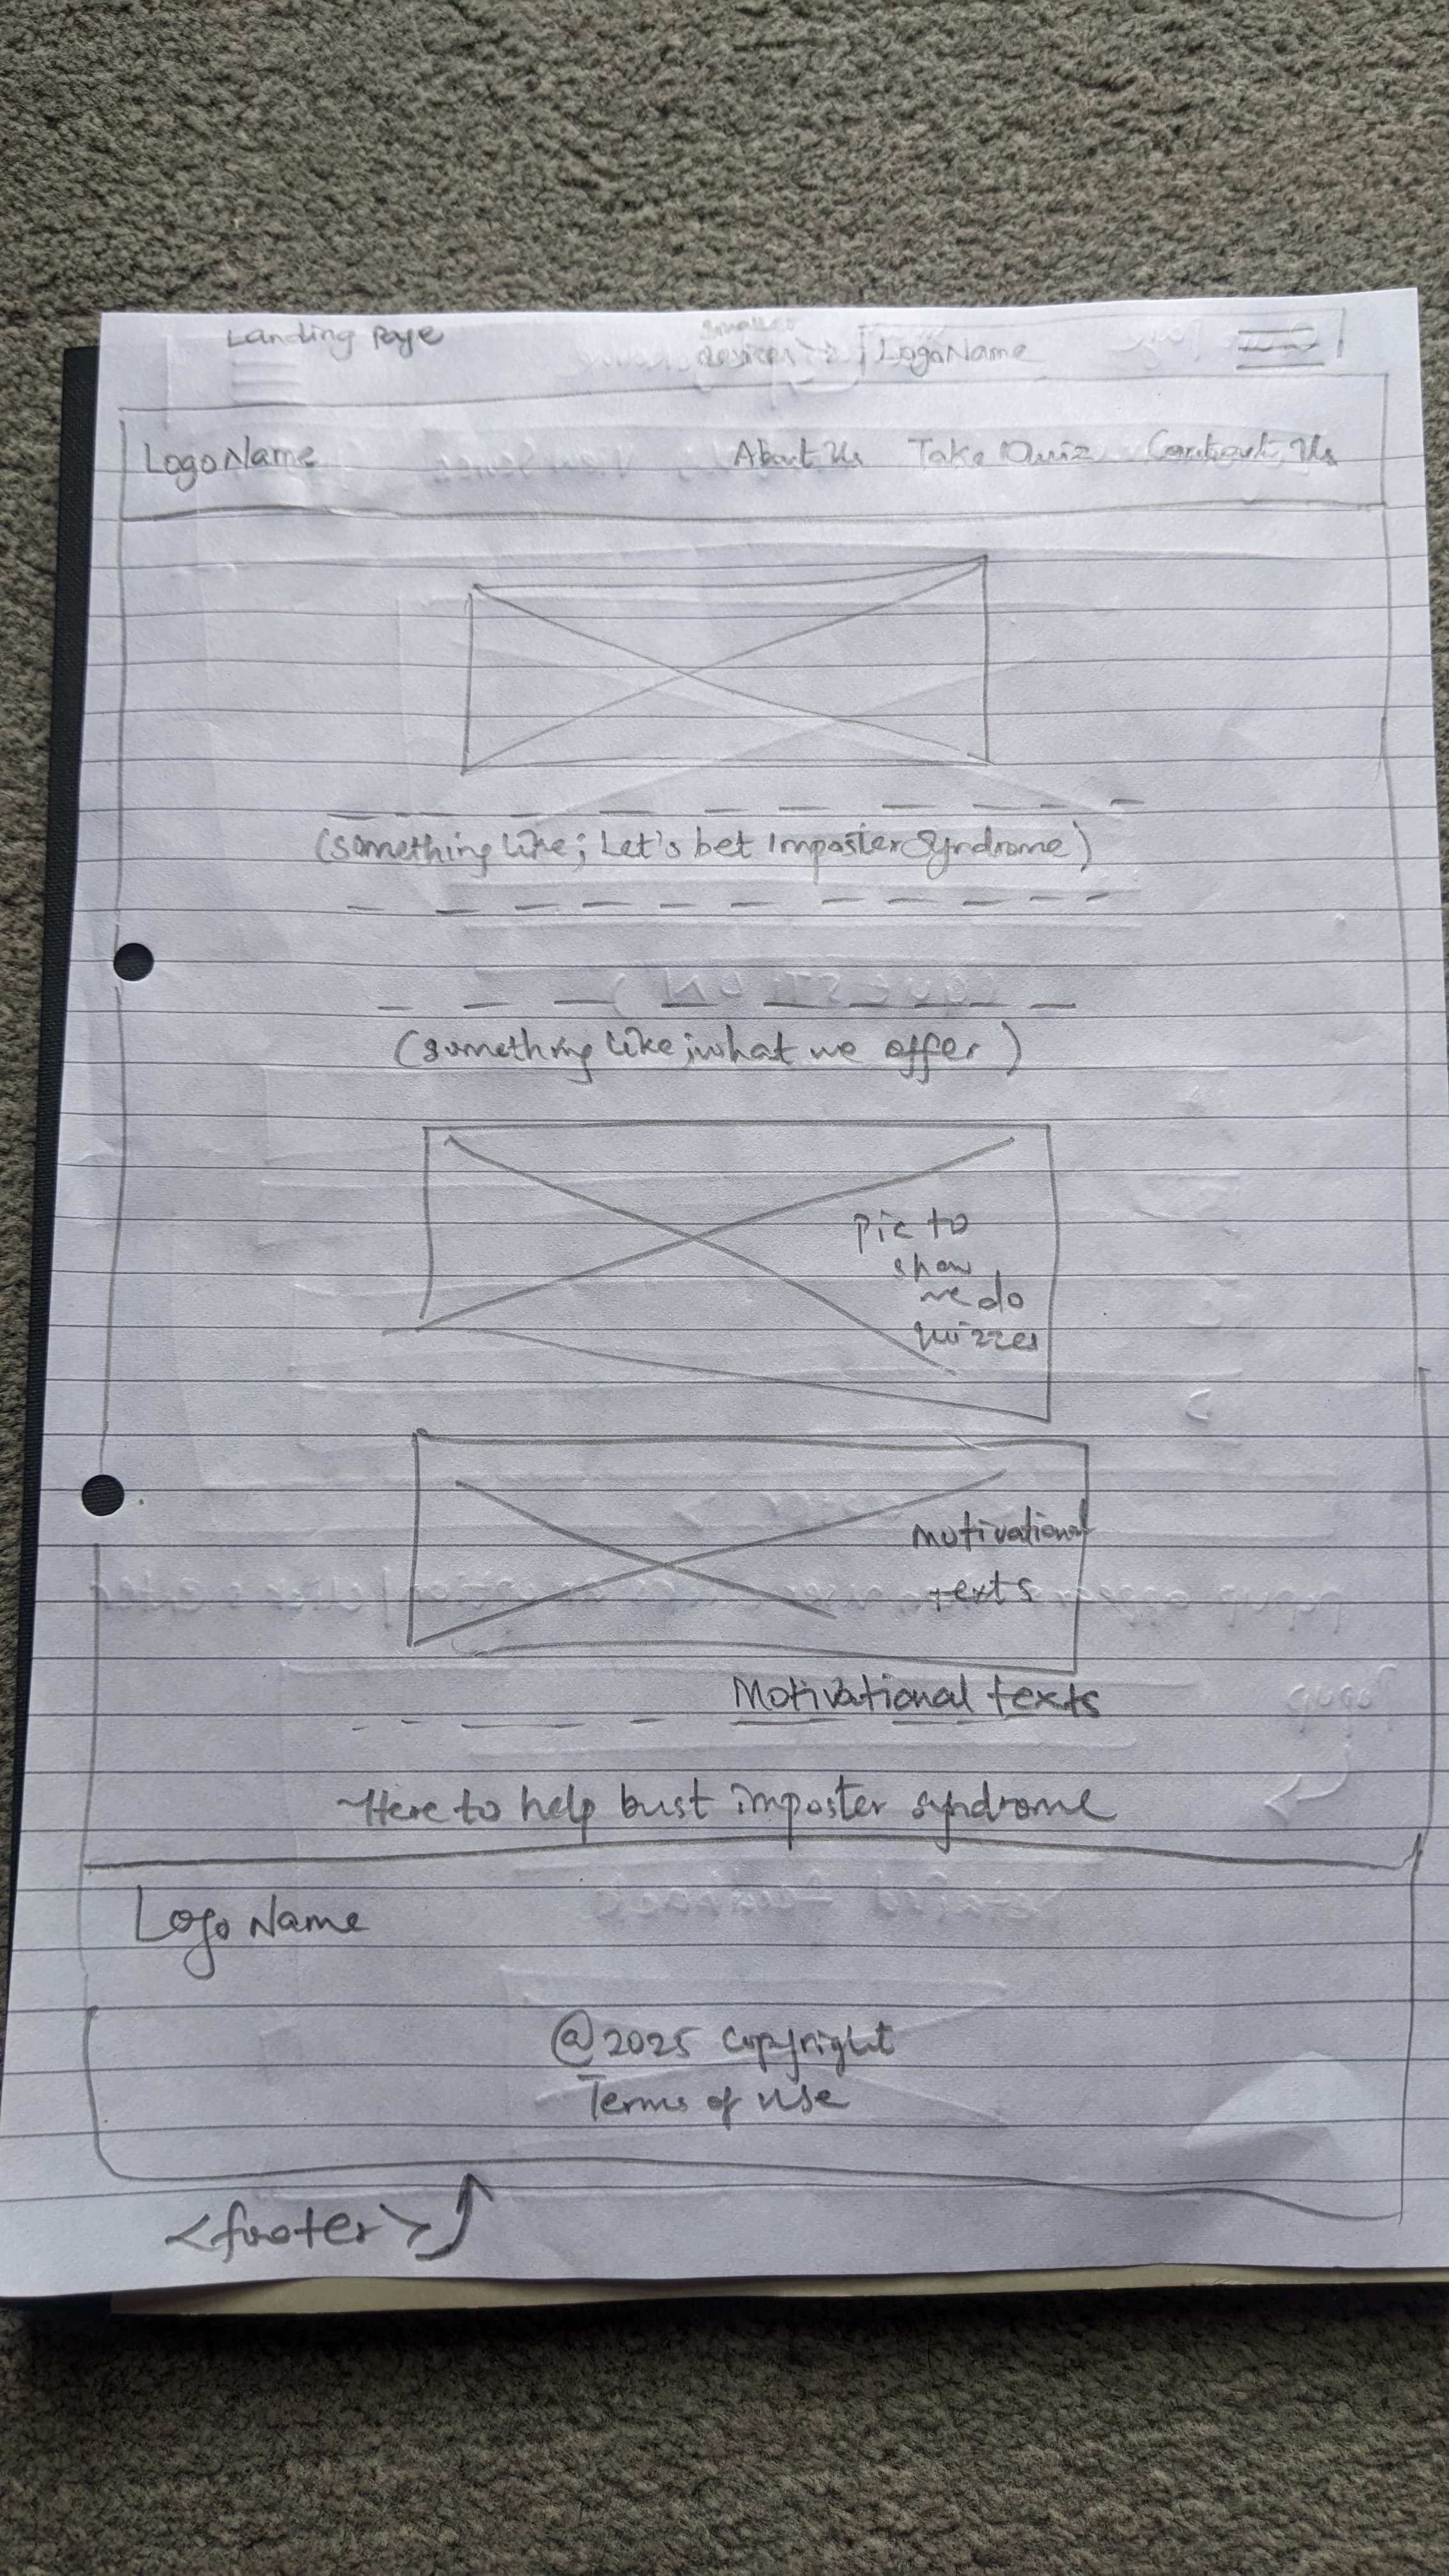 Landing Page
smaller
devices
LogoName
LogoName About Us Take Quiz Contact Us
(something like; Let's bet Imposter Syndrome)
(something like; what we offer)
Pic to
show
we do
quizzes
Motivational
texts
Motivational texts
Here to help bust imposter syndrome
Logo Name
@2025 Copyright
Terms of use
<footer>